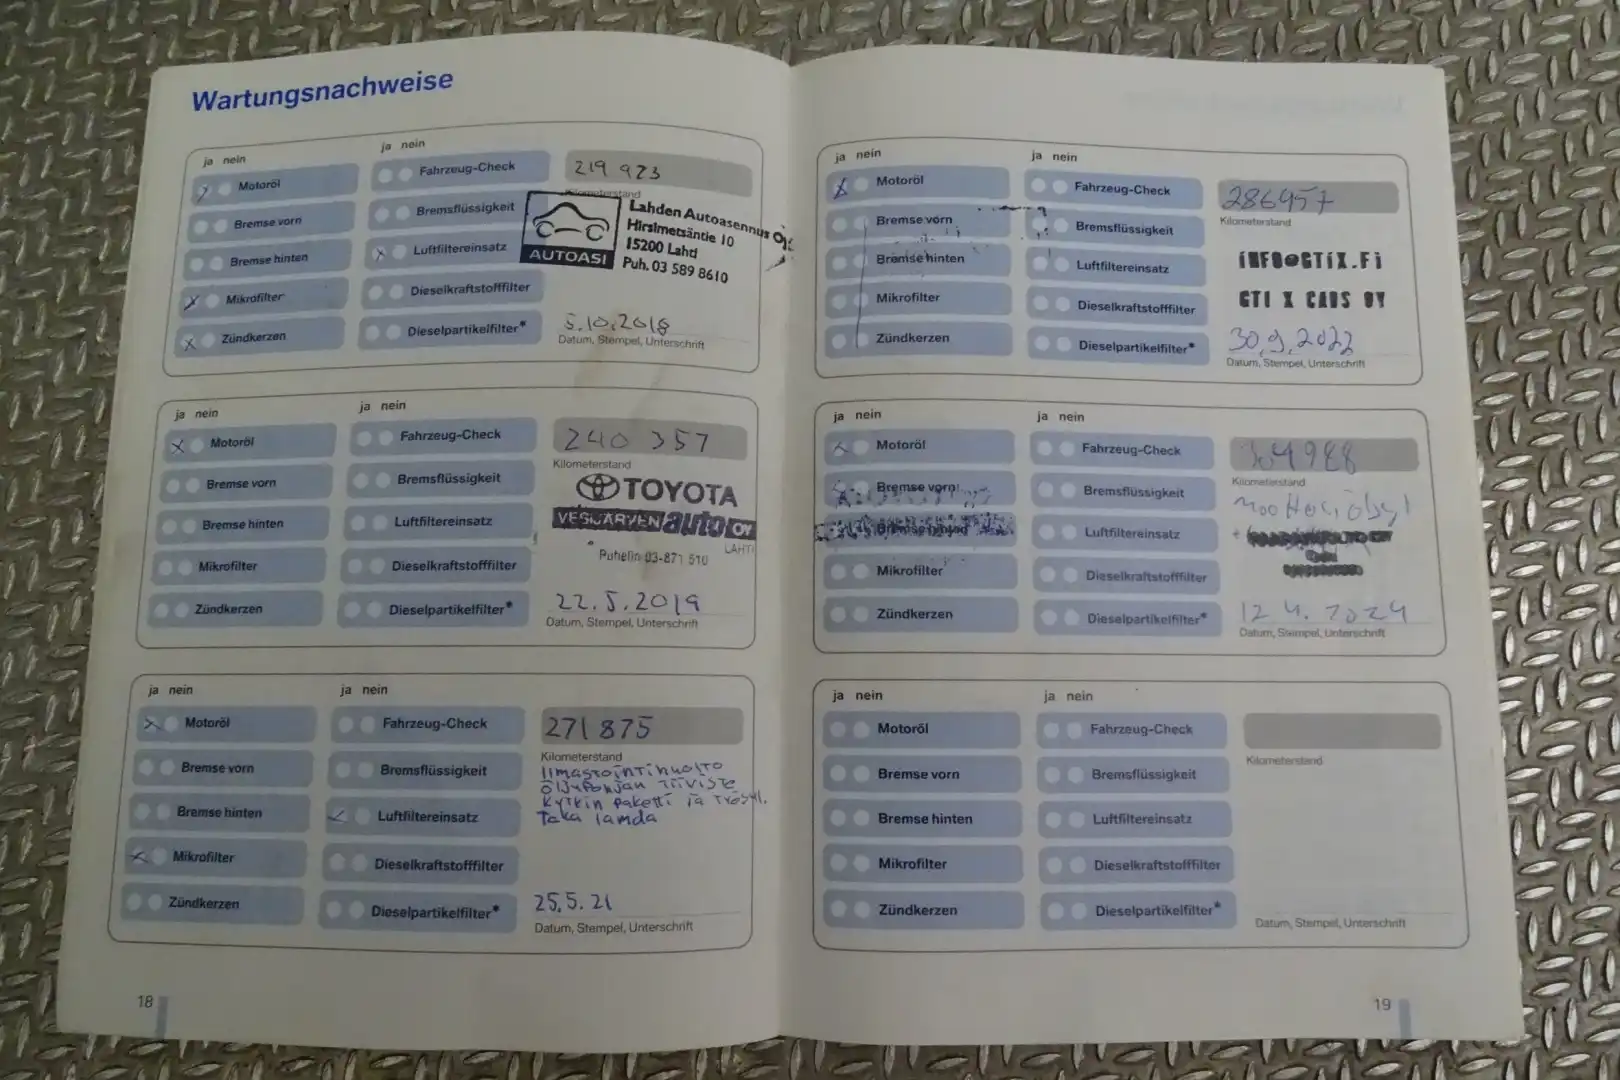 Wartungsnachweise
ja nein
ja nein
Motoröl
Fahrzeug-Check
219 923
Kilometerstand
Bremse vorn
Bremsflüssigkeit
Bremse hinten
Luftfiltereinsatz
Mikrofilter
Dieselkraftstofffilter
Zündkerzen
Dieselpartikelfilter*
AUTOASI
Lahden Autoasennus Oy
Hirsimetsäntie 10
15200 Lahti
Puh. 03 589 8610
5.10.2018
Datum, Stempel, Unterschrift
ja nein
ja nein
Motoröl
Fahrzeug-Check
240 357
Kilometerstand
Bremse vorn
Bremsflüssigkeit
Bremse hinten
Luftfiltereinsatz
Mikrofilter
Dieselkraftstofffilter
Zündkerzen
Dieselpartikelfilter*
TOYOTA
VESIJÄRVEN auto OY
LAHTI
Puhelin 03-871 510
22.5.2019
Datum, Stempel, Unterschrift
ja nein
ja nein
Motoröl
Fahrzeug-Check
271 875
Kilometerstand
Bremse vorn
Bremsflüssigkeit
Bremse hinten
Luftfiltereinsatz
Mikrofilter
Dieselkraftstofffilter
Zündkerzen
Dieselpartikelfilter*
Ilmastointihuolto
öljypohjan tiiviste
kytkin paketti ja työsyl.
Taka lamda
25.5.21
Datum, Stempel, Unterschrift
18
ja nein
ja nein
Motoröl
Fahrzeug-Check
286957
Kilometerstand
Bremse vorn
Bremsflüssigkeit
Bremse hinten
Luftfiltereinsatz
Mikrofilter
Dieselkraftstofffilter
Zündkerzen
Dieselpartikelfilter*
INFO@GTIX.FI
GTI X CARS OY
30.9.2022
Datum, Stempel, Unterschrift
ja nein
ja nein
Motoröl
Fahrzeug-Check
304988
Kilometerstand
Bremse vorn
Bremsflüssigkeit
Bremse hinten
Luftfiltereinsatz
Mikrofilter
Dieselkraftstofffilter
Zündkerzen
Dieselpartikelfilter*
Moottoriöljyt
12 4. 2024
Datum, Stempel, Unterschrift
ja nein
ja nein
Motoröl
Fahrzeug-Check
Kilometerstand
Bremse vorn
Bremsflüssigkeit
Bremse hinten
Luftfiltereinsatz
Mikrofilter
Dieselkraftstofffilter
Zündkerzen
Dieselpartikelfilter*
Datum, Stempel, Unterschrift
19